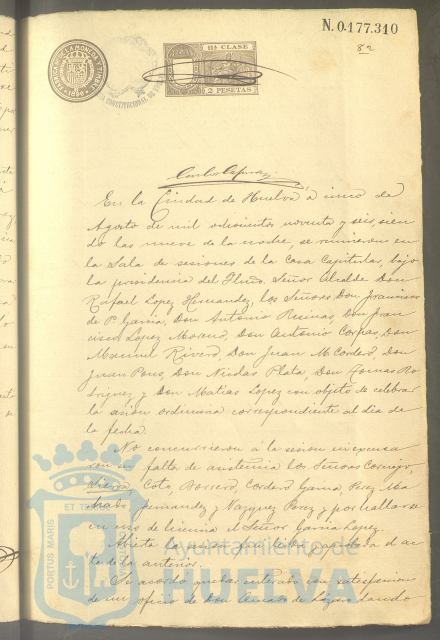 N. 0.177.310
82
FABRICA DE LA MONEDA Y TIMBRE
1896
CONSTITUCIONAL DE
11ª CLASE
2 PESETAS
En la Ciudad de Huelva á uno de
Agosto de mil ochocientos noventa y seis, sien
do las nueve de la noche, se reunieron en
la Sala de sesiones de la Casa Capitular, bajo
la presidencia del Iltmo. Señor Alcalde Don
Rafael Lopez Hernandez, los Señores Don Francisco
de P. Garcia, Don Antonio Resinas, Don Fran
cisco Lopez Moreno, Don Antonio Corpas, Don
Manuel Rivero, Don Juan M. Cordero, Don
Juan Pons, Don Nicolas Plata, Don Tomas Ro
driguez y Don Matias Lopez con objeto de celebrar
la sesion ordinaria correspondiente al dia de
la fecha.
No concurrieron á la sesion in excusa
falta de asistencia los Señores Cornejo,
Sierra, Coto, Borrero, Cordero Garcia, Perez Ma
chado, Fernandez y Vazquez Perez y por hallarse
en uso de licencia el Señor Garcia Lopez.
Abierta la sesion se leida y aprobada el ac
ta de la anterior.
Se acordó quedar enterado con satisfaccion
de un oficio de Don Amado de Lázaro dando
PORTUS MARIS
ET TERRE
Ayuntamiento de
HUELVA